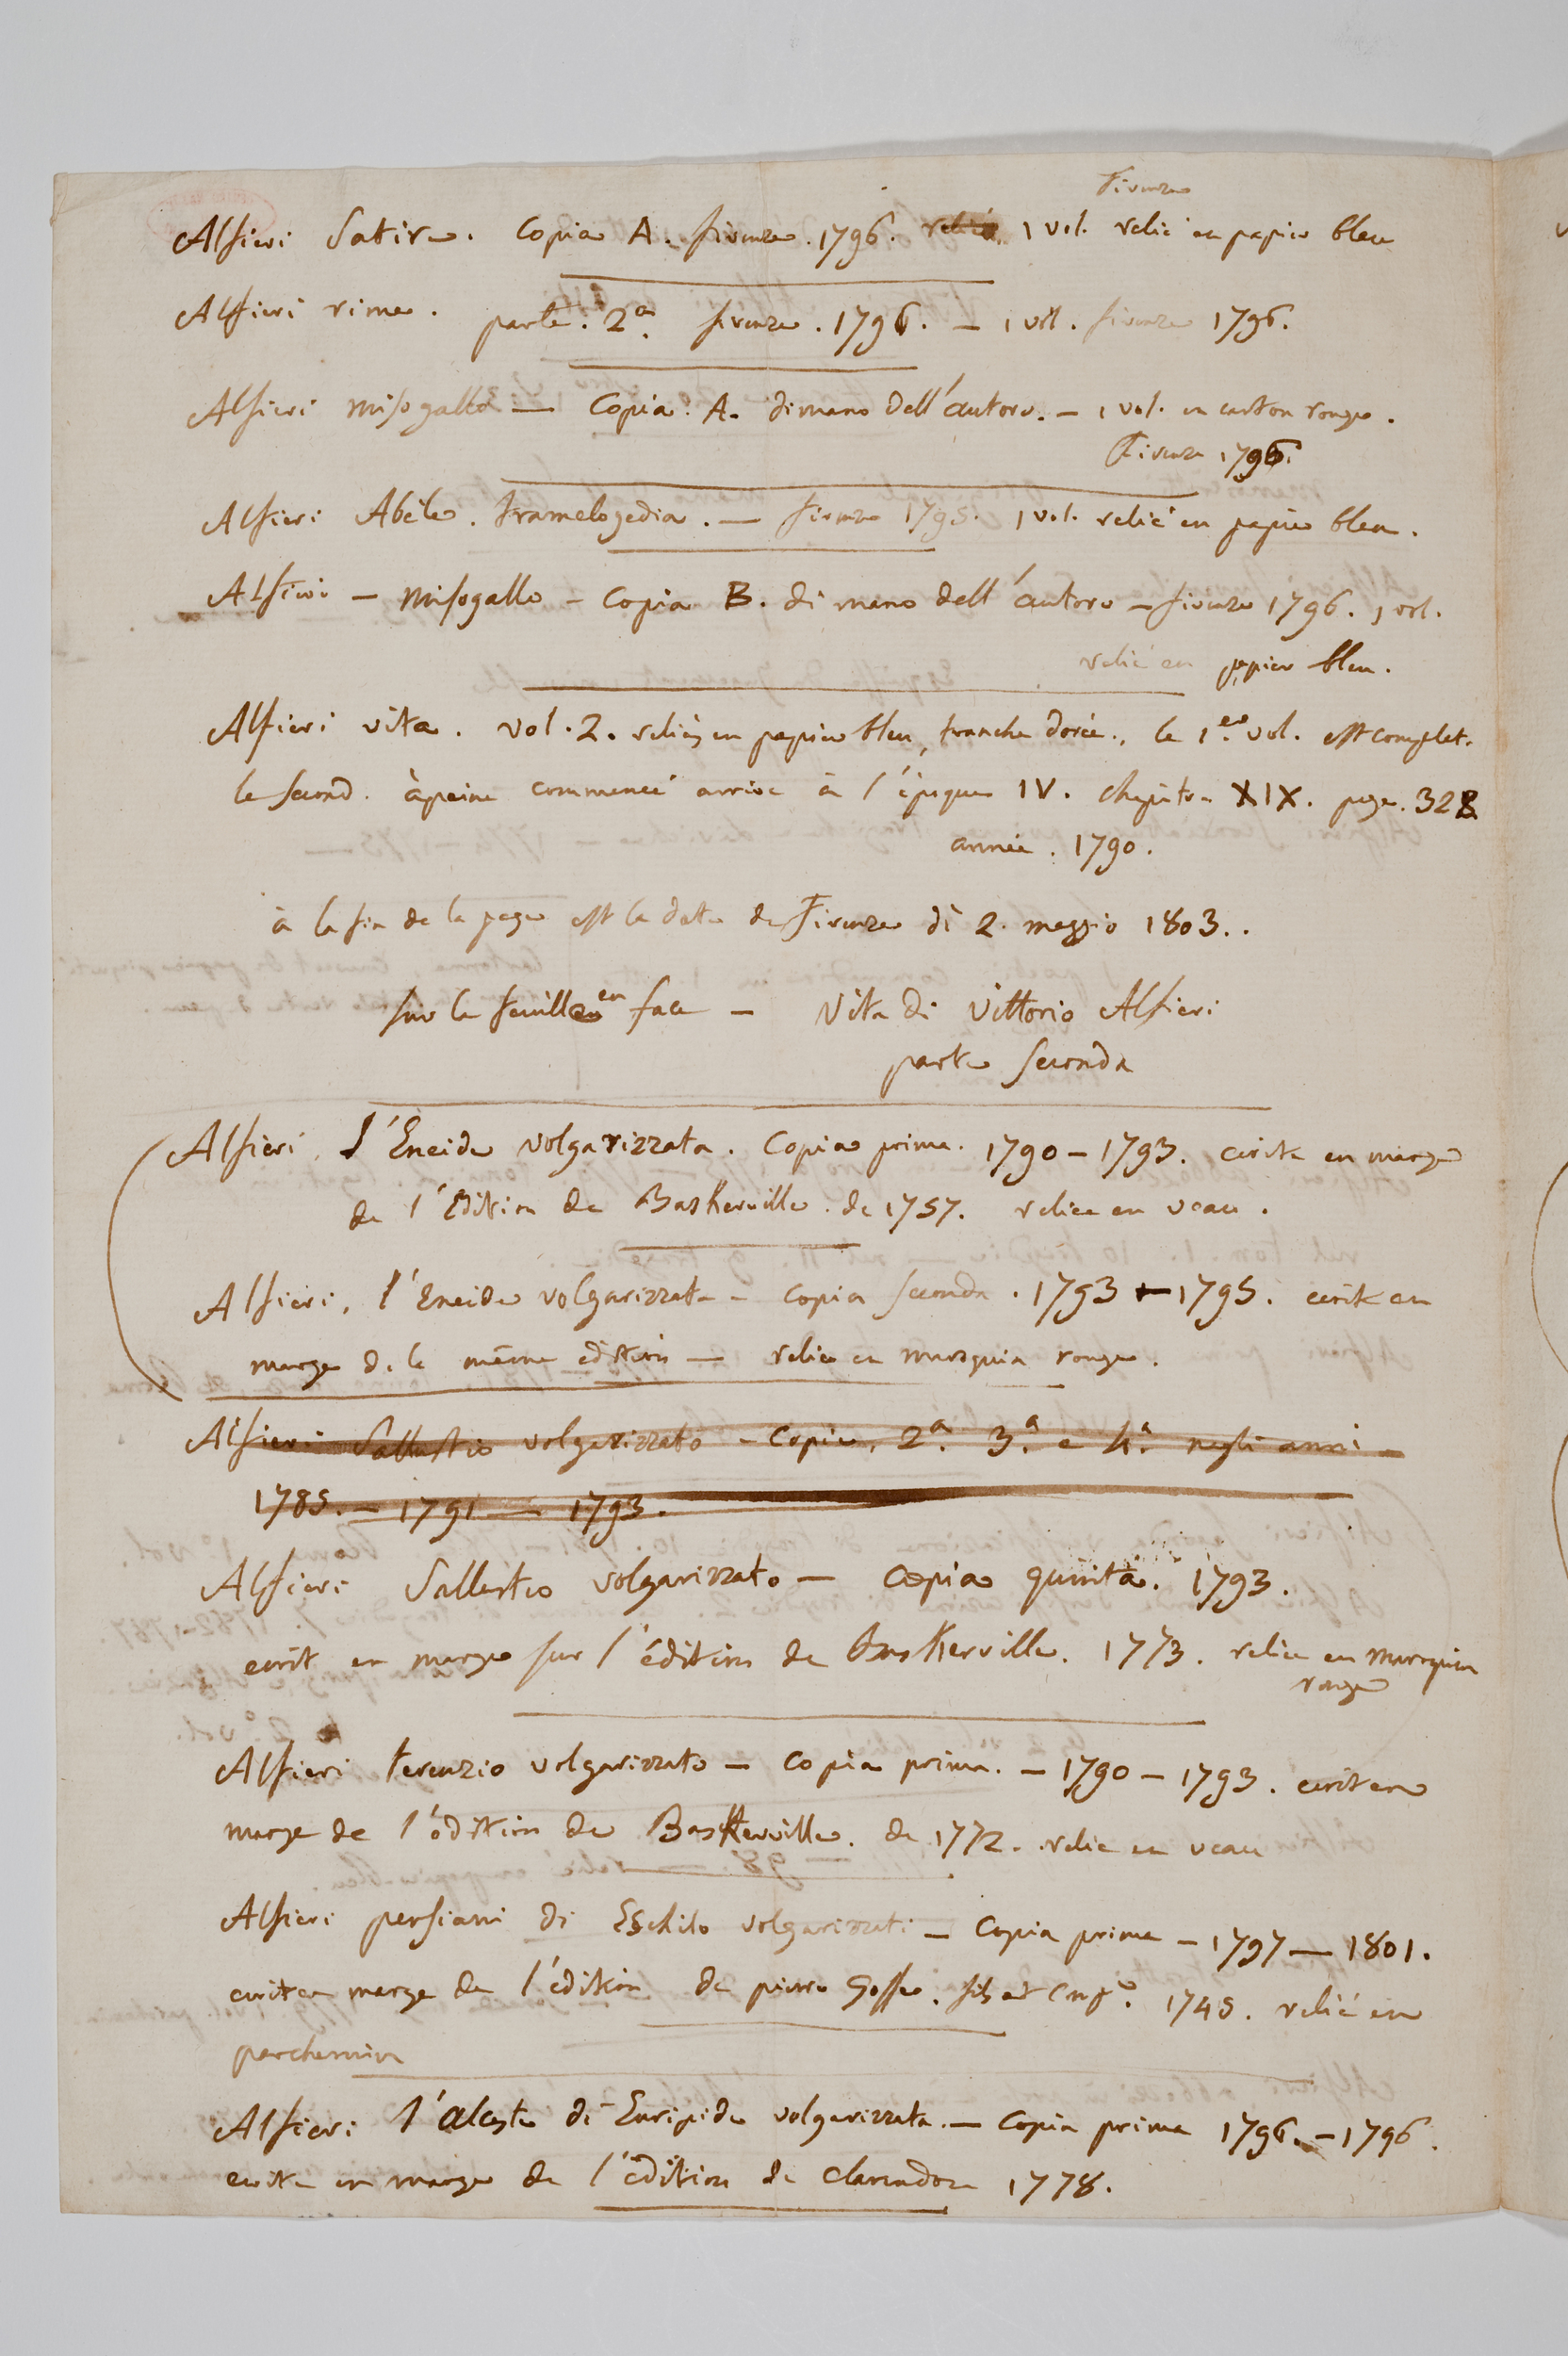 Firenze
Alfieri Satire. Copia A. firenze. 1796. relié 1 vol. relié en papier bleu
Alfieri rime. parte. 2a. firenze. 1796. — 1 vol. firenze 1796.
Alfieri misogallo — Copia. A. di mano dell'autore. — 1 vol. en carton rouge.
Firenze 1796.
Alfieri Abele. tramelogedia. — firenze 1795. 1 vol. relié en papier bleu.
Alfieri — misogallo — Copia B. di mano dell'autore — firenze 1796. 1 vol.
relié en papier bleu.
Alfieri vita. vol. 2. reliés en papier bleu, tranche dorée., le 1.er vol. est complet.
le second. à peine commencé arrive à l'époque IV. chapitre XIX. page. 328
année. 1790.
à la fin de la page est la date de Firenze di 2. maggio 1803..
sur la feuille en face — Vita di Vittorio Alfieri
parte Seconda
Alfieri, l'Eneide volgarizzata. Copia prima. 1790 — 1793. ecrite en marge
de l'édition de Baskerville. de 1757. reliée en veau.
Alfieri, l'Eneide volgarizzata — Copia seconda. 1793 — 1795. ecrite en
marge de la même edition — reliée en maroquin rouge.
Alfieri Sallustio volgarizzato — Copie, 2a. 3.a e 4.a negli anni —
1785. — 1791 — 1793.
Alfieri Sallustio volgarizzato — Copia quinta. 1793.
ecrit en marge sur l'édition de Baskerville. 1773. reliée en maroquin
rouge
Alfieri terenzio volgarizzato — Copia prima. — 1790 — 1793. ecrit en
marge de l'édition de Baskerville. de 1772. relié en veau
Alfieri persiani di Eschilo volgarizzati — Copia prima — 1797 — 1801.
ecrit en marge de l'édition de pierre Gosse. fils et 1745. relié en
parchemin
Alfieri l'alceste di Euripide volgarizzata. — Copia prima 1796. — 1796.
ecrite en marge de l'édition de clarendon 1778.